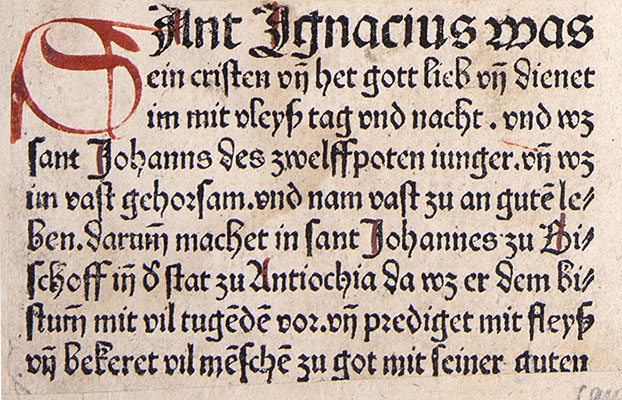 SAnt Ignacius was
ein cristen vñ het gott lieb vñ dienet
im mit vleyß tag vnd nacht . vnd wz
sant Johanns des zwelffpoten iunger. vñ wz
im vast gehorsam. vnd nam vast zu an gutē le⸗
ben. darum̄ machet in sant Johannes zu Bi⸗
schoff in̄ d̕ stat zu Antiochia da wz er dem bi⸗
stum̄ mit vil tugēdē vor. vñ prediget mit fleyß
vñ bekeret vil mēschē zu got mit seiner guten